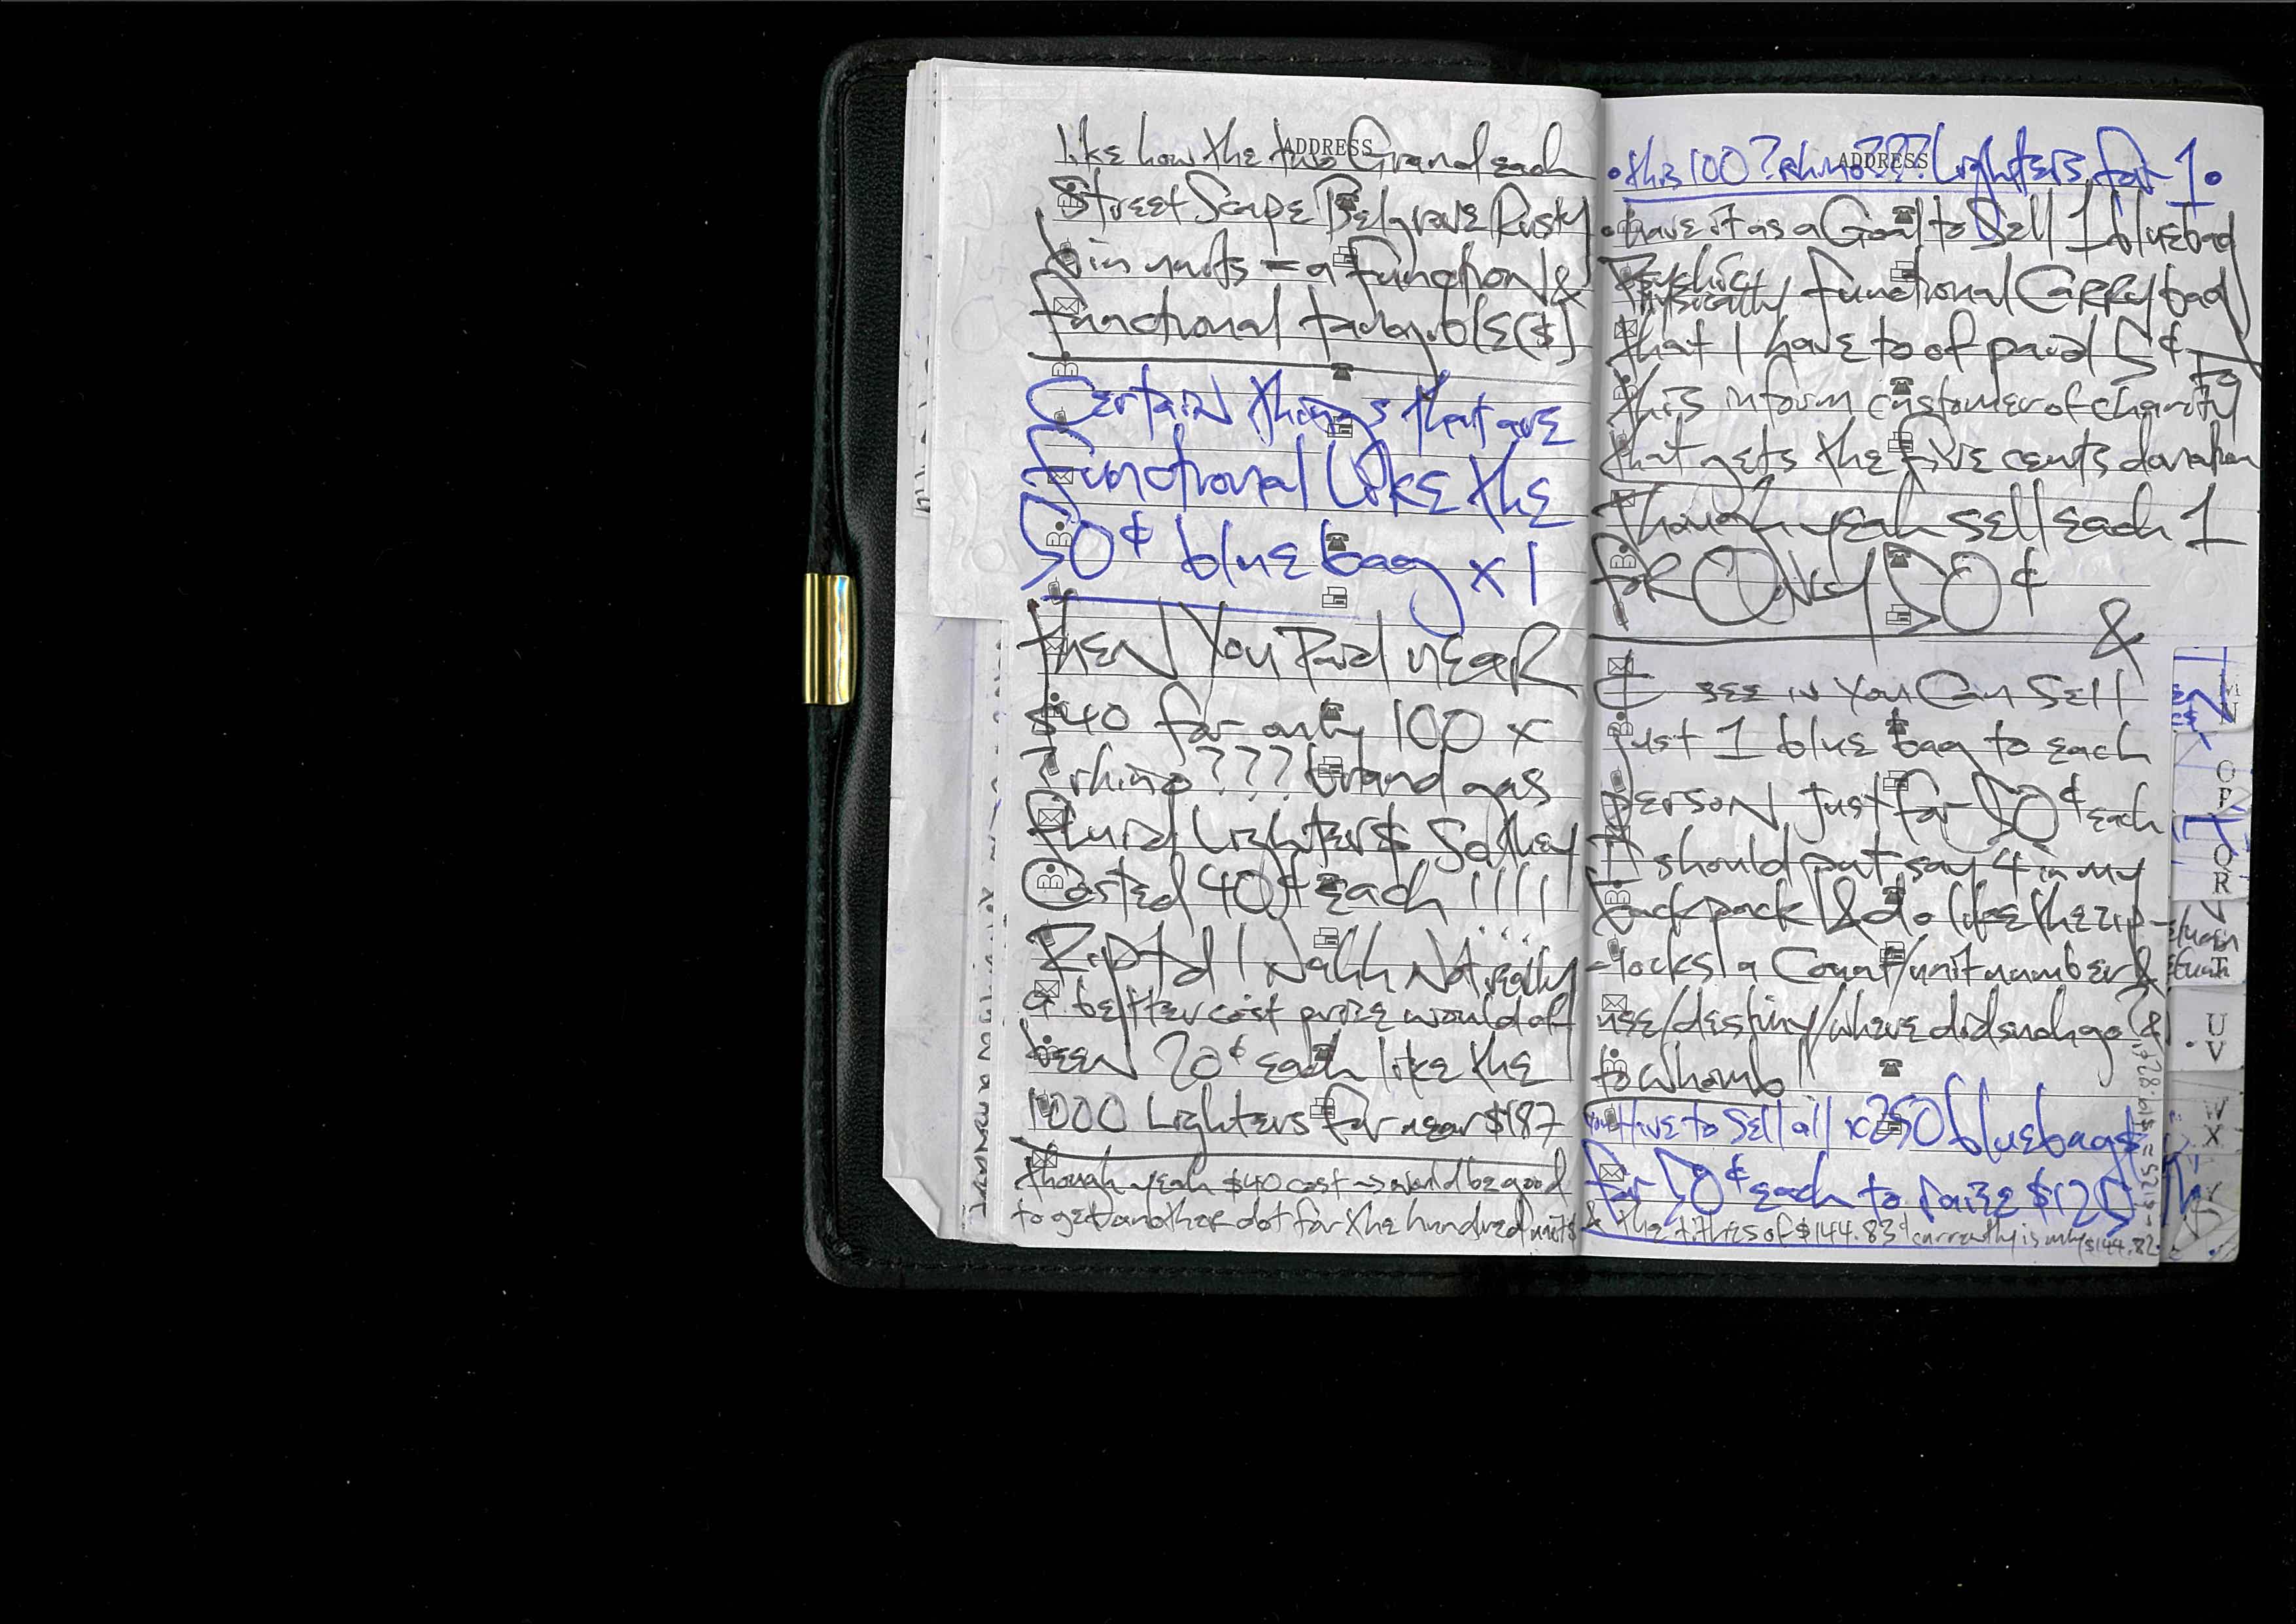 ADDRESS
like how the two Grand each
Street Scape Belgrave Rusty
bin units = a function &
functional tangible($)
Certain things that are
functional like the
50¢ blue bag x 1
then You Paid near
$40 for only 100 x
? rhino??? brand gas
fluid Lighters So they
Costed 40¢ each !!!!
Ript'd ! Nahh Not really
a better cost prize would of
been 20¢ each like the
1000 Lighters for near $187
though yeah $40 cost → would be good
to get another dot for the hundred units
ADDRESS
• this 100 ? rhino??? Lighters for 1.
• have it as a Goal to Sell 1 blue bag
Psychic
physically functional Carry bag
that I have to of paid 5¢
this inform customer of charity
that gets the five cents donation
Though yeah sell each 1
for Only 50¢
&
see in You Can Sell
just 1 blue bag to each
person just for 50¢ each
I should put say 4 in my
backpack & do like the zip-
-locks a Count/unit number &
use/destiny/where did such go &
to whomb
You Have to Sell all x250 blue bags
for 50¢ each to raize $125
& the tithes of $144.83¢ currently is only $144.82
M
N
O
P
Q
R
T
U
V
W
X
Y